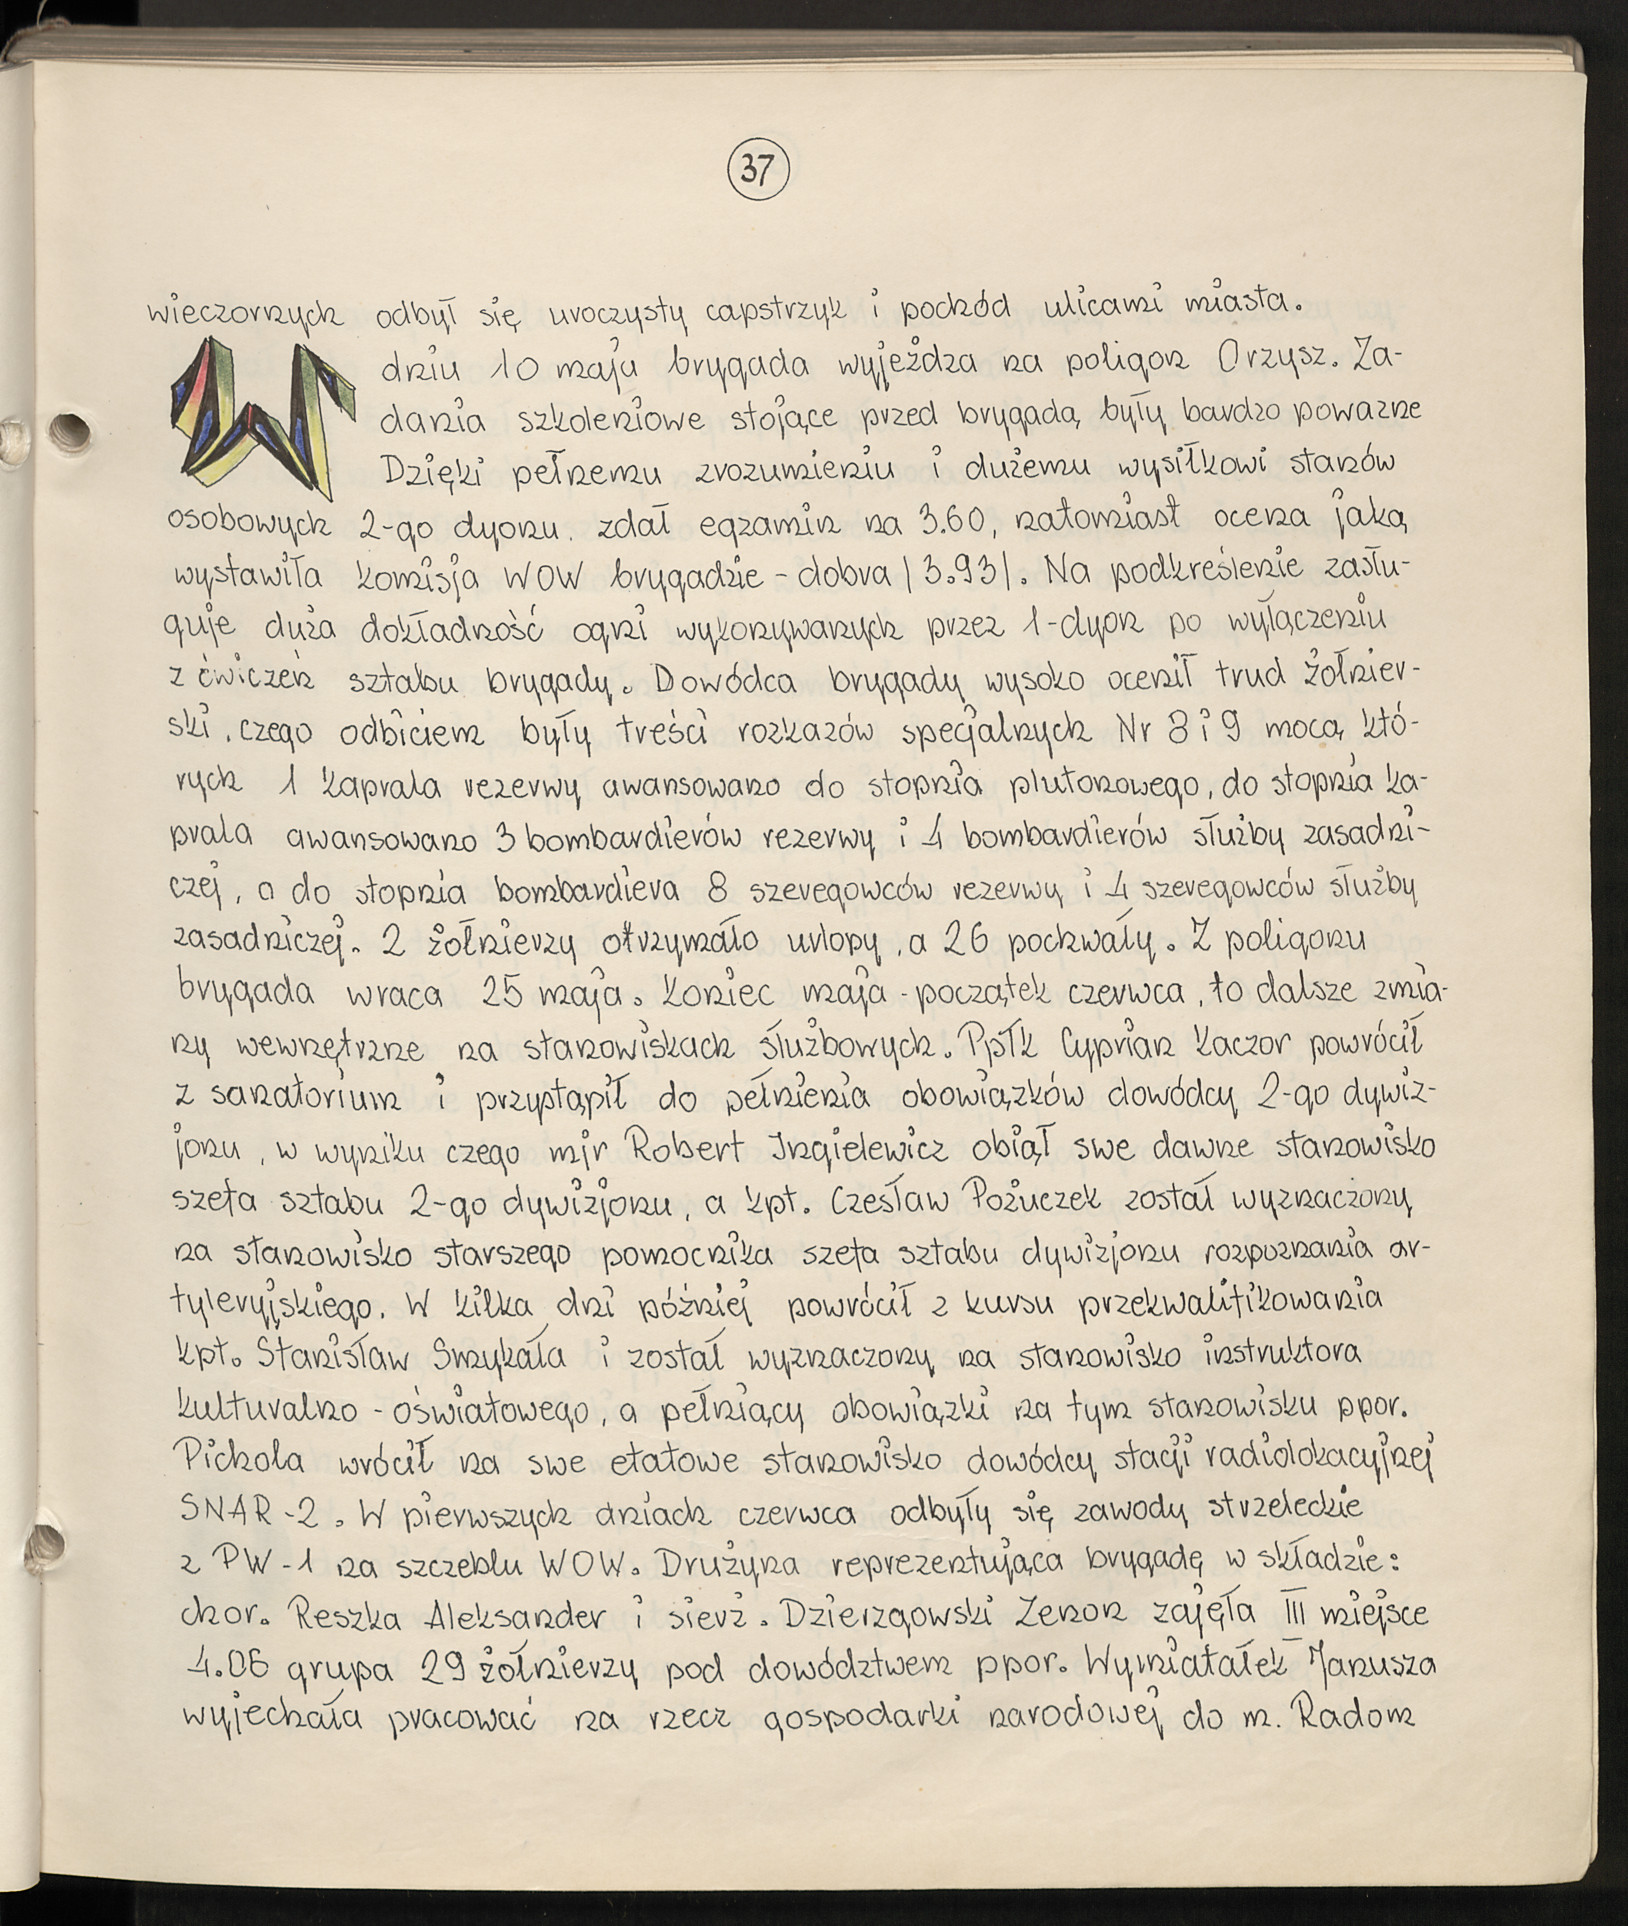 37
wieczornych odbył się uroczysty capstrzyk i pochód ulicami miasta.
W dniu 10 maja brygada wyjeżdża na poligon Orzysz. Za-
dania szkoleniowe stojące przed brygadą były bardzo poważne
Dzięki pełnemu zrozumieniu i dużemu wysiłkowi stanów
osobowych 2-go dyonu. zdał egzamin na 3.60, natomiast ocena jaką
wystawiła komisja WOW brygadzie - dobra /3.93/. Na podkreślenie zasłu-
guje duża dokładność ogni wykonywanych przez 1-dyon po wyłączeniu
z ćwiczeń sztabu brygady. Dowódca brygady wysoko ocenił trud żołnier-
ski, czego odbiciem były treści rozkazów specjalnych Nr 8 i 9 mocą któ-
rych 1 kaprala rezerwy awansowano do stopnia plutonowego, do stopnia ka-
prala awansowano 3 bombardierów rezerwy i 4 bombardierów służby zasadni-
czej, a do stopnia bombardiera 8 szeregowców rezerwy i 4 szeregowców służby
zasadniczej. 2 żołnierzy otrzymało urlopy, a 26 pochwały. Z poligonu
brygada wraca 25 maja. Koniec maja - początek czerwca, to dalsze zmia-
ny wewnętrzne na stanowiskach służbowych. Ppłk Cyprian Kaczor powrócił
z sanatorium i przystąpił do pełnienia obowiązków dowódcy 2-go dywiz-
jonu, w wyniku czego mjr Robert Ingielewicz objął swe dawne stanowisko
szefa sztabu 2-go dywizjonu, a kpt. Czesław Pożuczek został wyznaczony
na stanowisko starszego pomocnika szefa sztabu dywizjonu rozpoznania ar-
tyleryjskiego. W kilka dni później powrócił z kursu przekwalifikowania
kpt. Stanisław Smykała i został wyznaczony na stanowisko instruktora
kulturalno - oświatowego, a pełniący obowiązki na tym stanowisku ppor.
Pichola wrócił na swe etatowe stanowisko dowódcy stacji radiolokacyjnej
SNAR-2. W pierwszych dniach czerwca odbyły się zawody strzeleckie
z PW-1 na szczeblu WOW. Drużyna reprezentująca brygadę w składzie:
chor. Reszka Aleksander i sierż. Dzierzgowski Zenon zajęła III miejsce
4.06 grupa 29 żołnierzy pod dowództwem ppor. Wymiatałek Janusza
wyjechała pracować na rzecz gospodarki narodowej do m. Radom